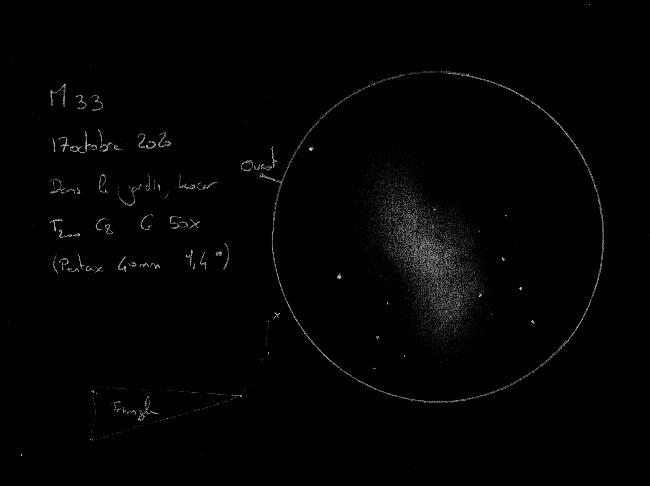 M 33
17 octobre 2020
Ouest
Dans le jardin,
T200 C8 G 50x
(Pentax 40mm 1,4°)
Triangle